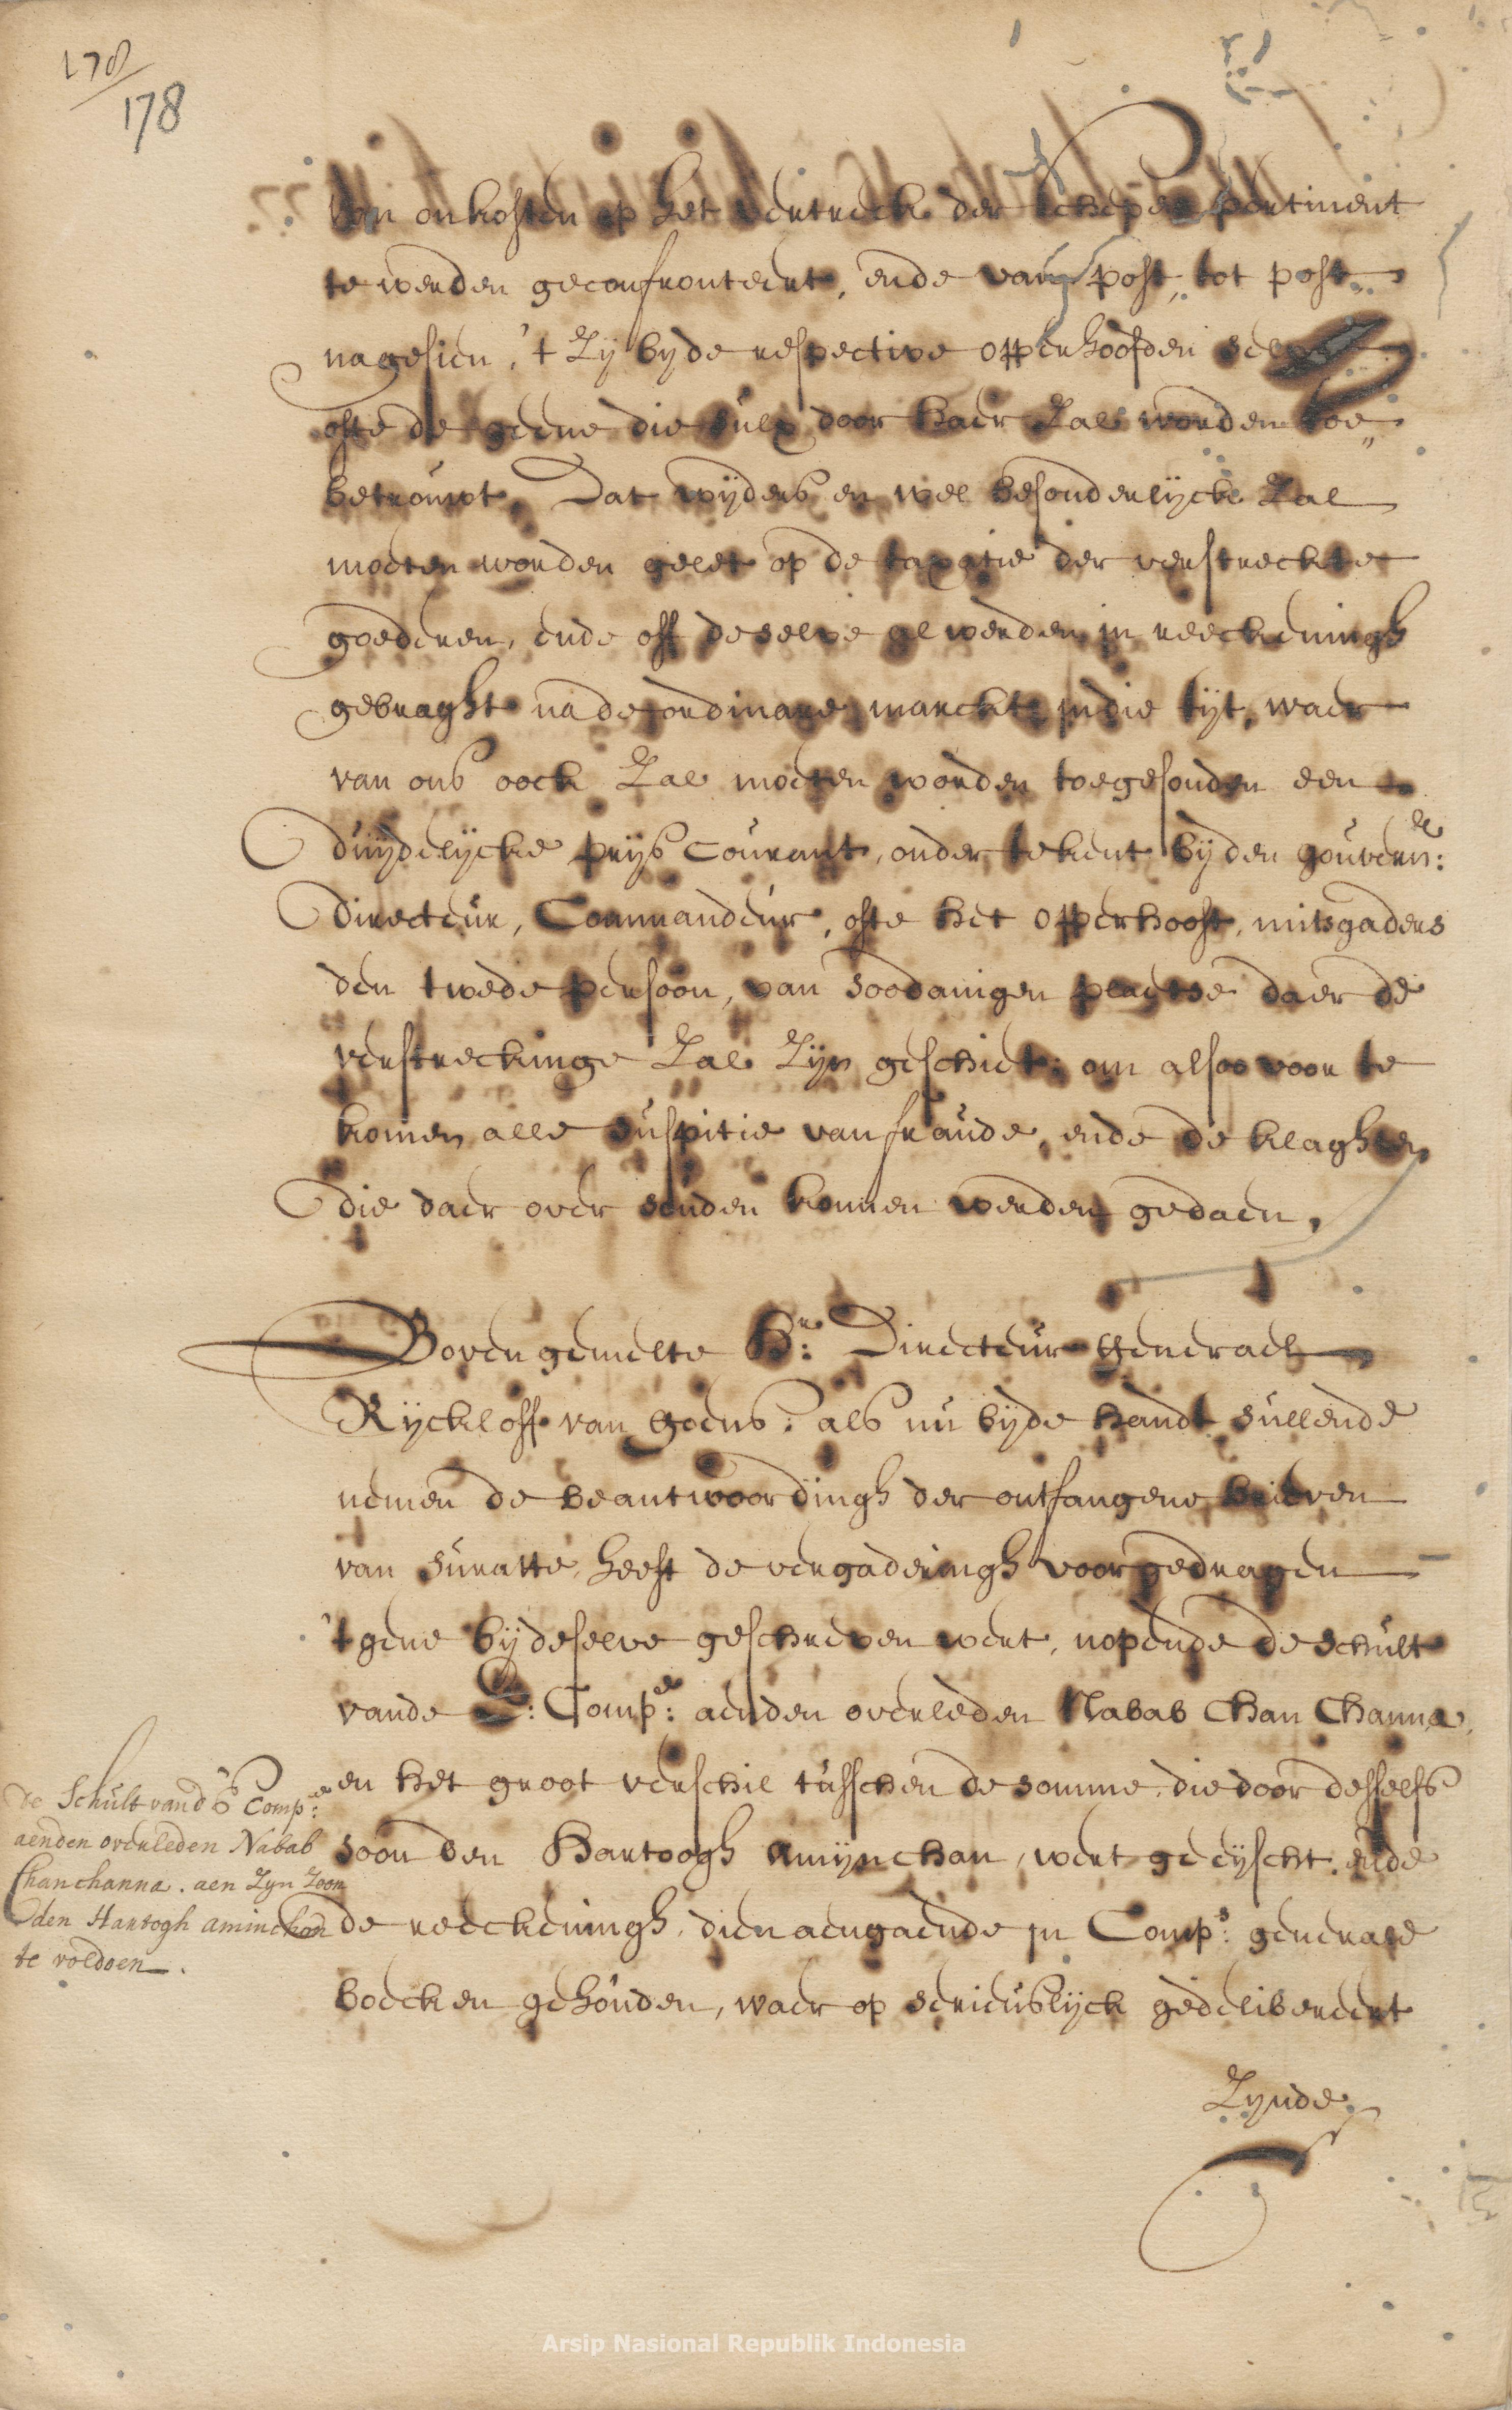 178
178
van onkosten op het vertreck der schepen pertinent
te werden geconfronteert, ende van post, tot post,
nagesien, 't Zy by de respective opperhoofden
ofte de geene die sulx door haer Zal worden toe„
betrouwt, Dat wyders en wel besonderlyck Zal
moeten worden gelet op de taxatie der verstreckte
goederen, ende off deselve al werden in reeckeningh
gebraght na de ordinare marckt in die tyt, waer
van ons oock Zal moeten worden toegesonden een
duydelycke prys courant, ondertekent by den gouvern:
directeur, Commandeur, ofte het opperhooft, mitsgaders
den twede persoon, van soodanigen plaetse daer de
verstreckinge Zal Zyn geschiet; om alsoo voor te
komen alle suspitie van fraude, ende de klaghten,
die daer over souden konnen werden gedaen,
Boven gemelte Hr: Directeur Generael
Ryckloff van Goens: als nu by de handt sullende
nemen de beantwoordingh der ontfangene brieven
van Suratte, heeft de vergaderingh voorgedragen
't gene by deselve geschreven wert, nopende de schult
vande E: Compe: aenden overleden Nabab Chan Channa,
en het groot verschil tusschen de somme, die door desselfs
soon den Hartoogh Amynchan, wert geeyscht, ende
de reeckeningh, dien aengaende in Comps: generale
boecken gehouden, waer op serieuslyck gedelibereert
Zynde
de Schult vand' E Compe:
aenden overleden Nabab
Chanchanna. aen Zyn Zoon
den Hartogh aminchan
te voldoen.
Arsip Nasional Republik Indonesia